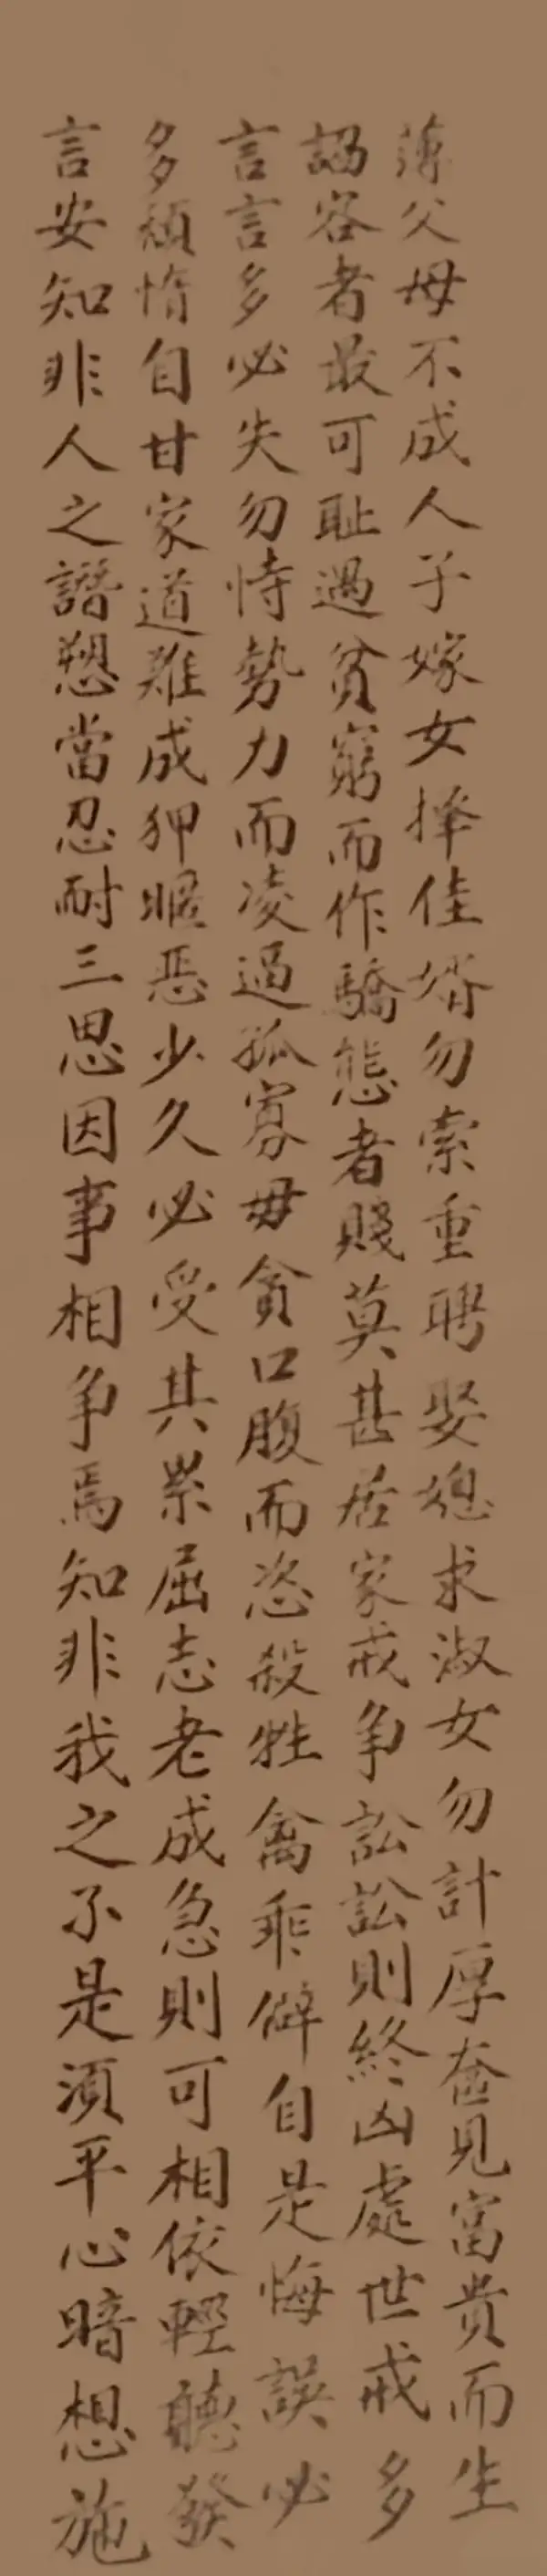 薄父母不成人子嫁女擇佳婿勿索重聘娶媳求淑女勿計厚奩見富贵而生
謟容者最可耻遇貧窮而作驕態者賤莫甚居家戒争訟訟則終凶處世戒多
言言多必失勿恃勢力而凌逼孤寡毋貪口腹而恣殺牲禽乖僻自是悔誤必
多頽惰自甘家道難成狎暱恶少久必受其累屈志老成急則可相依輕聽發
言安知非人之譖愬當忍耐三思因事相争焉知非我之不是湏平心暗想施